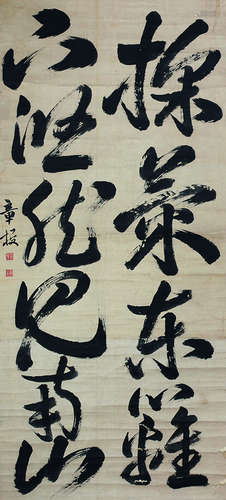 採菊東籬
下悠然見南山
章援